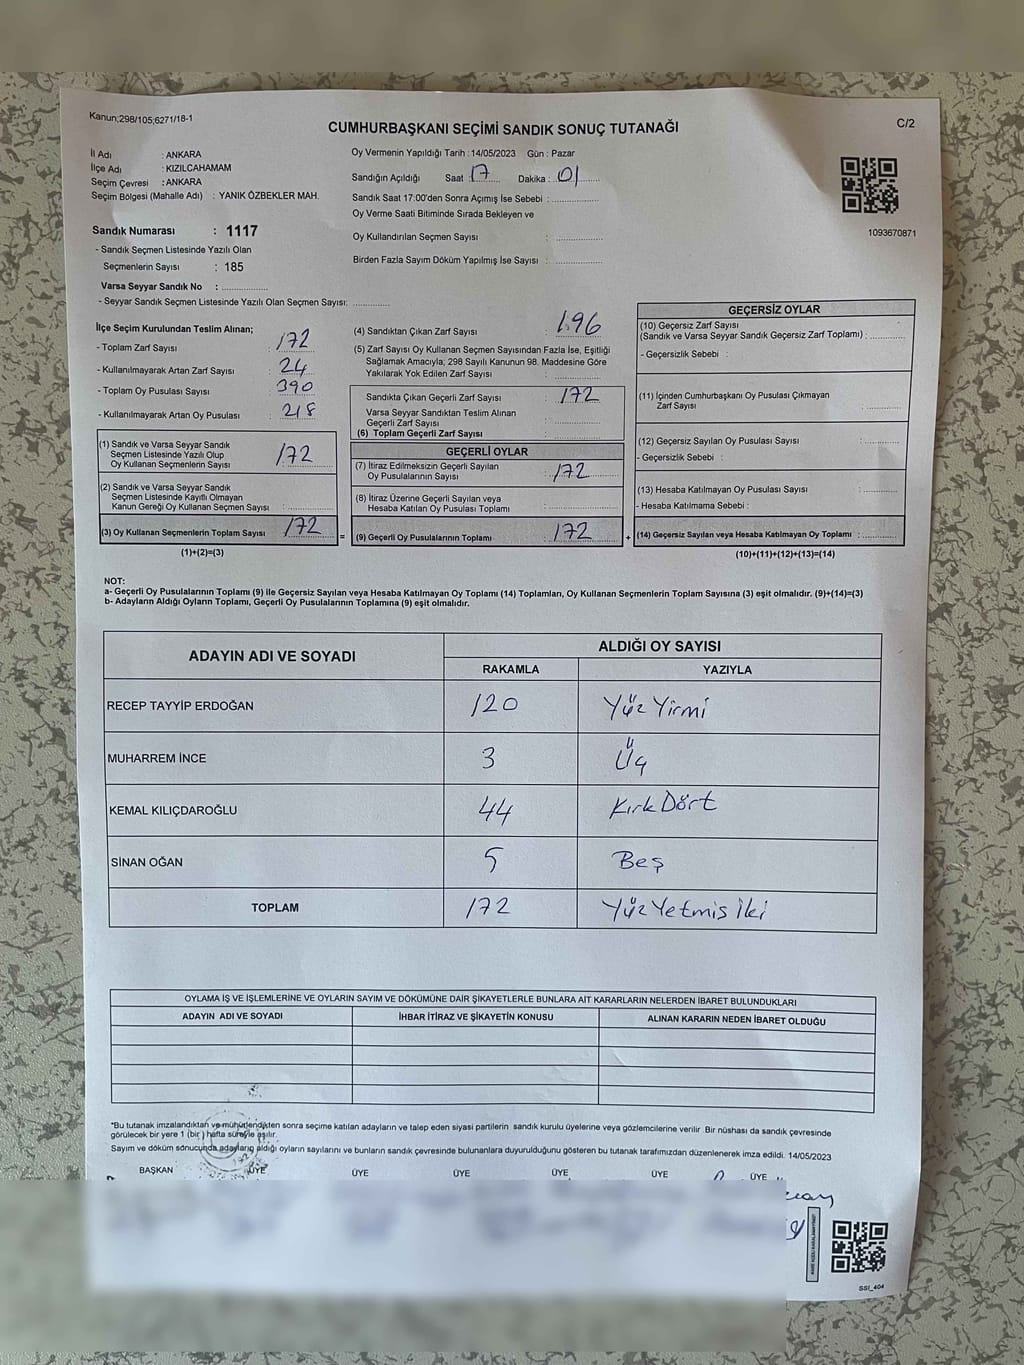 Kanun;298/105;6271/18-1
C/2
CUMHURBAŞKANI SEÇİMİ SANDIK SONUÇ TUTANAĞI
İl Adı : ANKARA
İlçe Adı : KIZILCAHAMAM
Seçim Çevresi : ANKARA
Seçim Bölgesi (Mahalle Adı) : YANIK ÖZBEKLER MAH.
Sandık Numarası : 1117
- Sandık Seçmen Listesinde Yazılı Olan
Seçmenlerin Sayısı : 185
Varsa Seyyar Sandık No : ................
- Seyyar Sandık Seçmen Listesinde Yazılı Olan Seçmen Sayısı: ............
Oy Vermenin Yapıldığı Tarih : 14/05/2023 Gün : Pazar
Sandığın Açıldığı Saat : 17 Dakika : 01
Sandık Saat 17:00'den Sonra Açımış İse Sebebi : ................
Oy Verme Saati Bitiminde Sırada Bekleyen ve
Oy Kullandırılan Seçmen Sayısı : ................
Birden Fazla Sayım Döküm Yapılmış İse Sayısı : ................
1093670871
İlçe Seçim Kurulundan Teslim Alınan;
- Toplam Zarf Sayısı : 172
- Kullanılmayarak Artan Zarf Sayısı : 24
- Toplam Oy Pusulası Sayısı : 390
- Kullanılmayarak Artan Oy Pusulası : 218
(1) Sandık ve Varsa Seyyar Sandık
Seçmen Listesinde Yazılı Olup
Oy Kullanan Seçmenlerin Sayısı : 172
(2) Sandık ve Varsa Seyyar Sandık
Seçmen Listesinde Kayıtlı Olmayan
Kanun Gereği Oy Kullanan Seçmen Sayısı : ................
(3) Oy Kullanan Seçmenlerin Toplam Sayısı : 172
(1)+(2)=(3)
(4) Sandıktan Çıkan Zarf Sayısı : 196
(5) Zarf Sayısı Oy Kullanan Seçmen Sayısından Fazla İse, Eşitliği
Sağlamak Amacıyla; 298 Sayılı Kanunun 98. Maddesine Göre
Yakılarak Yok Edilen Zarf Sayısı : ................
Sandıkta Çıkan Geçerli Zarf Sayısı : 172
Varsa Seyyar Sandıktan Teslim Alınan
Geçerli Zarf Sayısı : ................
(6) Toplam Geçerli Zarf Sayısı : ................
GEÇERLİ OYLAR
(7) İtiraz Edilmeksizin Geçerli Sayılan
Oy Pusulalarının Sayısı : 172
(8) İtiraz Üzerine Geçerli Sayılan veya
Hesaba Katılan Oy Pusulaları Toplamı : ................
= (9) Geçerli Oy Pusulalarının Toplamı : 172 +
GEÇERSİZ OYLAR
(10) Geçersiz Zarf Sayısı
(Sandık ve Varsa Seyyar Sandık Geçersiz Zarf Toplamı) : ............
- Geçersizlik Sebebi :
(11) İçinden Cumhurbaşkanı Oy Pusulası Çıkmayan
Zarf Sayısı : ............
(12) Geçersiz Sayılan Oy Pusulası Sayısı : ............
- Geçersizlik Sebebi :
(13) Hesaba Katılmayan Oy Pusulası Sayısı : ............
- Hesaba Katılmama Sebebi :
(14) Geçersiz Sayılan veya Hesaba Katılmayan Oy Toplamı : ............
(10)+(11)+(12)+(13)=(14)
NOT:
a- Geçerli Oy Pusulalarının Toplamı (9) ile Geçersiz Sayılan veya Hesaba Katılmayan Oy Toplamı (14) Toplamları, Oy Kullanan Seçmenlerin Toplam Sayısına (3) eşit olmalıdır. (9)+(14)=(3)
b- Adayların Aldığı Oyların Toplamı, Geçerli Oy Pusulalarının Toplamına (9) eşit olmalıdır.
ADAYIN ADI VE SOYADI ALDIĞI OY SAYISI
RAKAMLA YAZIYLA
RECEP TAYYİP ERDOĞAN 120 Yüz Yirmi
MUHARREM İNCE 3 Üç
KEMAL KILIÇDAROĞLU 44 Kırk Dört
SİNAN OĞAN 5 Beş
TOPLAM 172 Yüz Yetmis İki
OYLAMA İŞ VE İŞLEMLERİNE VE OYLARIN SAYIM VE DÖKÜMÜNE DAİR ŞİKAYETLERLE BUNLARA AİT KARARLARIN NELERDEN İBARET BULUNDUKLARI
ADAYIN ADI VE SOYADI İHBAR İTİRAZ VE ŞİKAYETİN KONUSU ALINAN KARARIN NEDEN İBARET OLDUĞU
*Bu tutanak imzalandıktan ve mühürlendikten sonra seçime katılan adayların ve talep eden siyasi partilerin sandık kurulu üyelerine veya gözlemcilerine verilir .Bir nüshası da sandık çevresinde
görülecek bir yere 1 (bir ) hafta süreyle asılır.
Sayım ve döküm sonucunda adayların aldığı oyların sayılarını ve bunların sandık çevresinde bulunanlara duyurulduğunu gösteren bu tutanak tarafımızdan düzenlenerek imza edildi. 14/05/2023
BAŞKAN ÜYE ÜYE ÜYE ÜYE ÜYE ÜYE
SSI_404